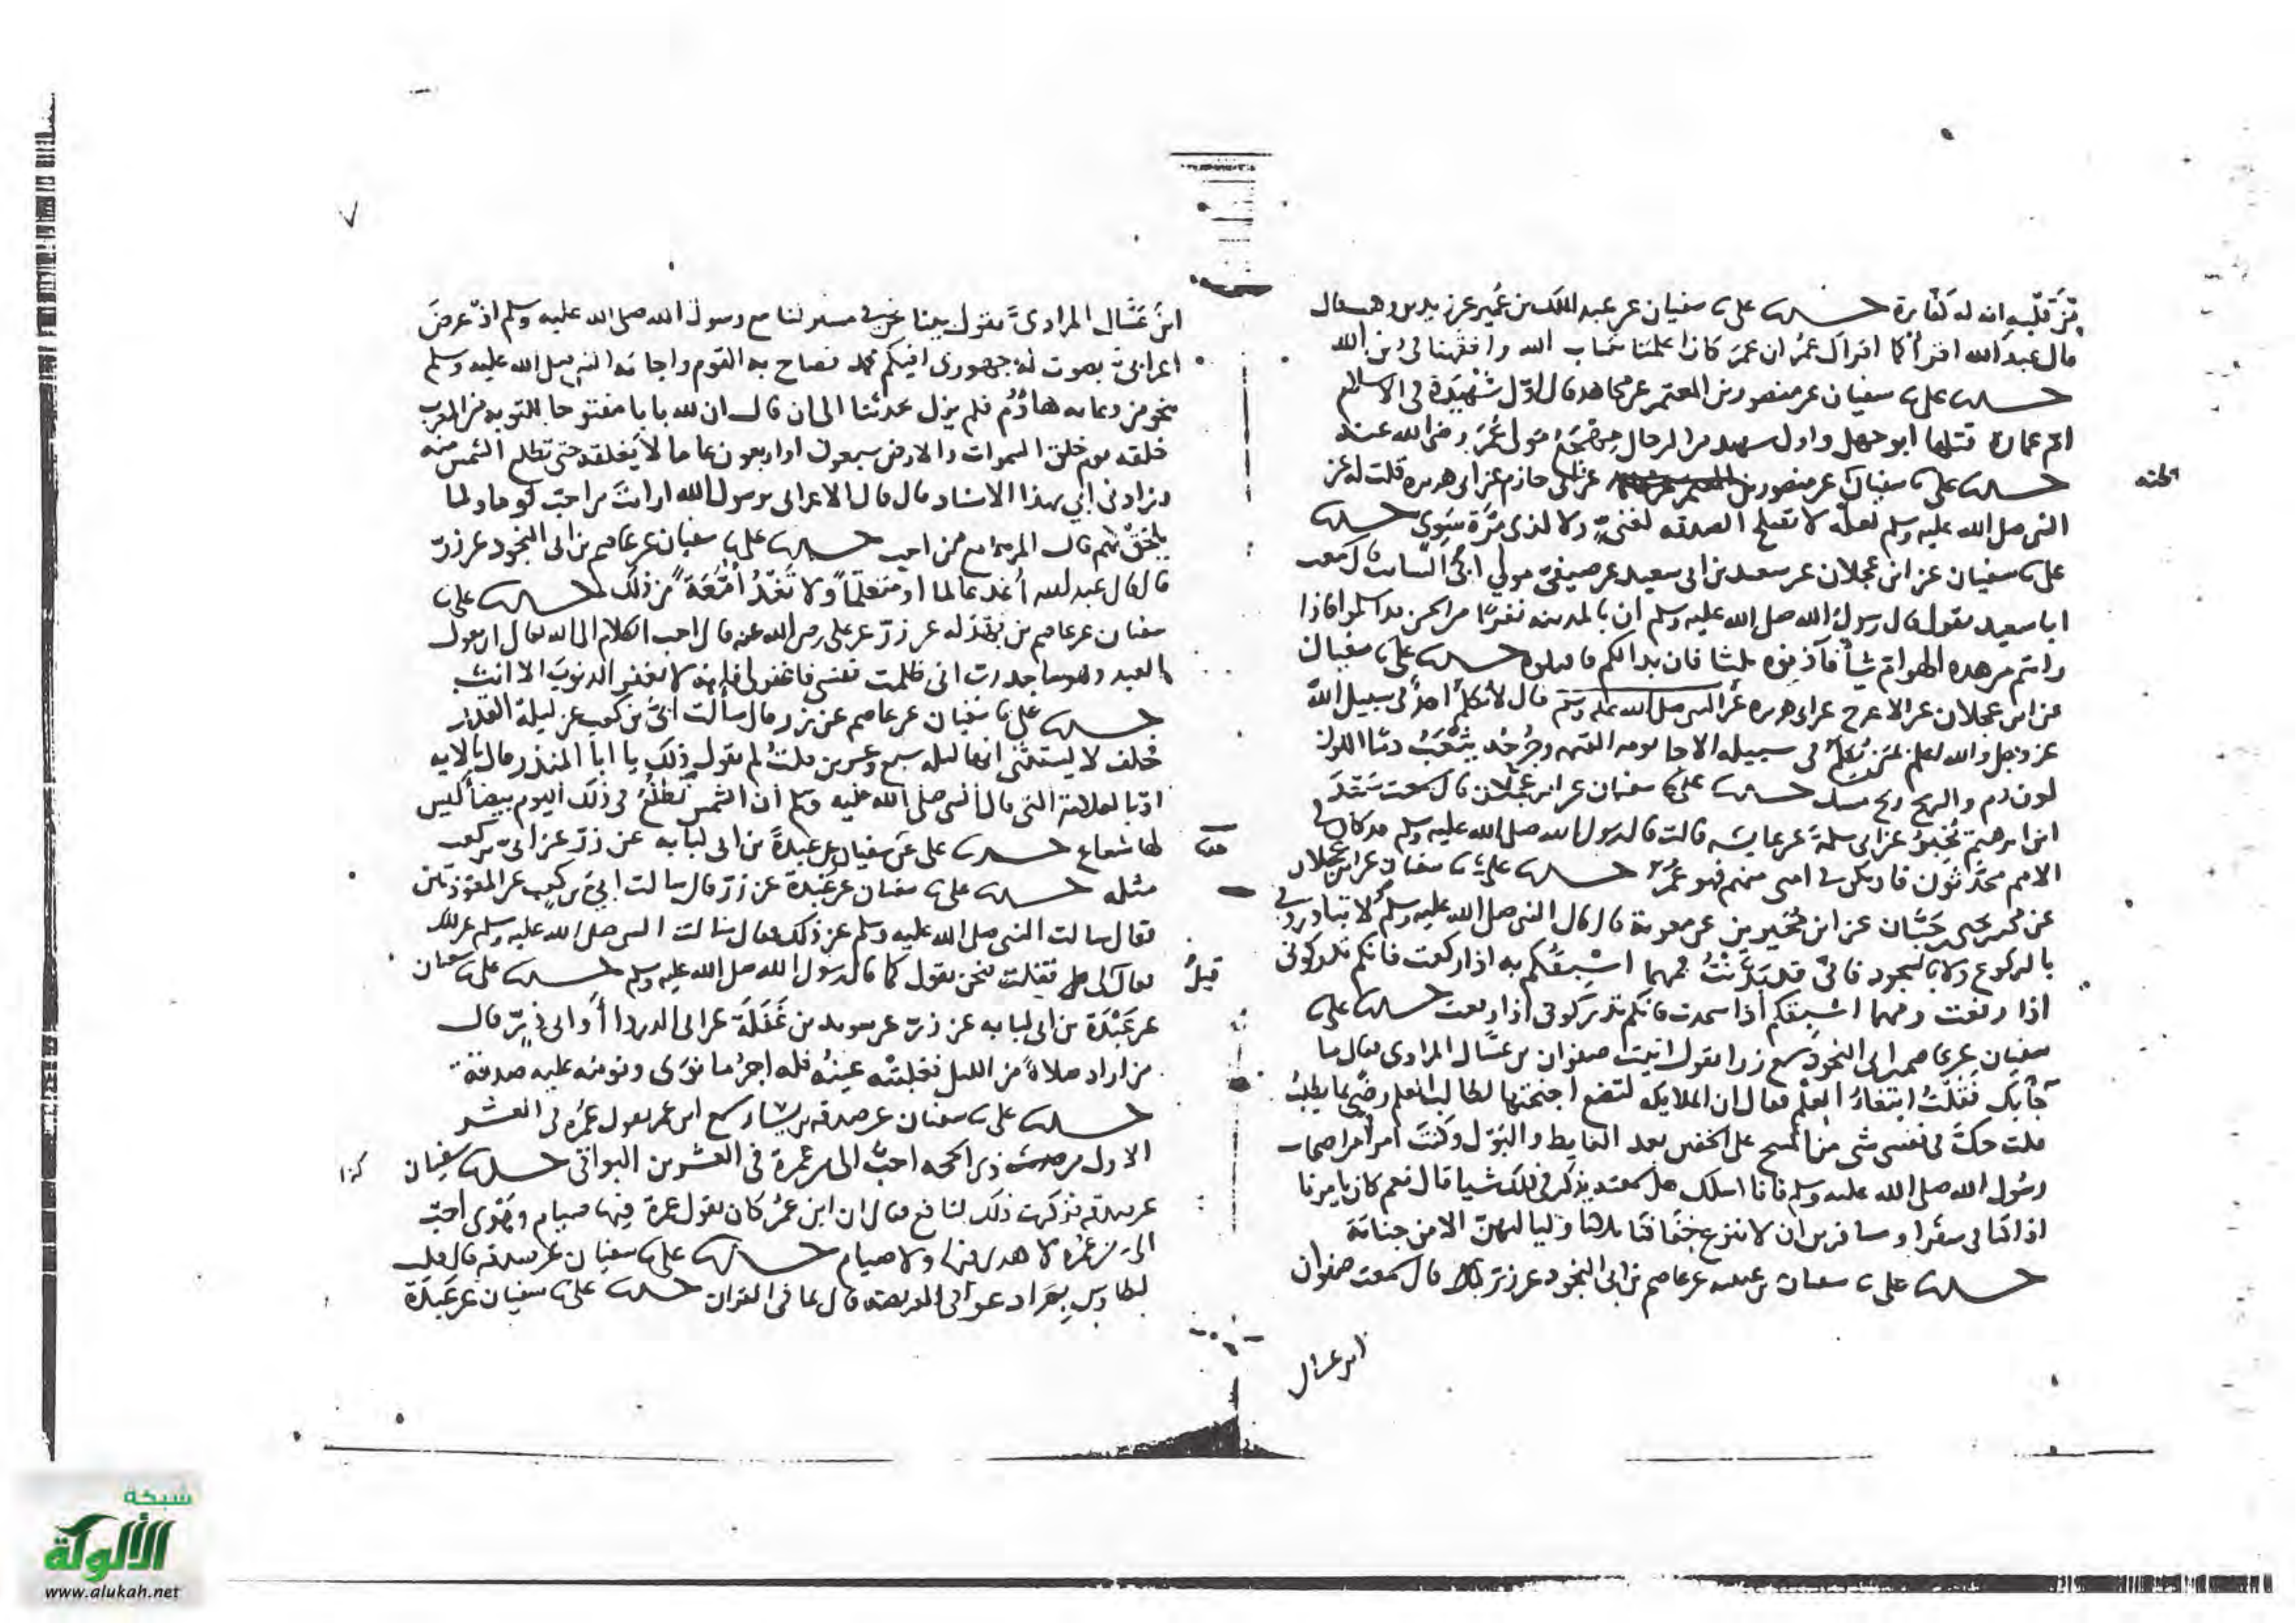 من قلبه انه له كفارة حدثنا علي نا سفيان عن عبد الملك بن عمير عن زيد بن وهب قال
قال عبد الله اقرأ كما اقراك عمر ان عمر كان اعلمنا بكتاب الله وافقهنا في دين الله
حدثنا علي نا سفيان عن منصور بن المعتمر عن مجاهد قال اول شهيدة في الاسلام
ام عمارة قتلها ابو جهل واول شهيد من الرجال مهجع مولى عمر رضي الله عنه
حدثنا علي نا سفيان عن منصور عن ابي حازم عن ابي هريرة قلت له عن
النبي صلى الله عليه وسلم لعله لا تصلح الصدقة لغني ولا لذي مرة سوي حدثنا
علي نا سفيان عن ابن عجلان عن سعيد بن ابي سعيد عن صيفي مولى ابي السائب قال سمعت
ابا سعيد يقول قال رسول الله صلى الله عليه وسلم ان بالمدينة نفرا من الجن قد اسلموا فاذا
رايتم من هذه الهوام شيأ فآذنوه ثلثا فان بدا لكم فاقتلوه حدثنا علي نا سفيان
عن ابن عجلان عن الاعرج عن ابي هريرة عن النبي صلى الله عليه وسلم قال لا يكلم احد في سبيل الله
عز وجل والله اعلم بمن يكلم في سبيله الا جا يوم القيمة وجرحه يثعب دما اللون
لون دم والريح ريح مسك حدثنا علي نا سفيان عن ابن عجلان قال سمعت سعد
ابن ابرهيم يحدث عن ابي سلمة عن عايشة قالت قال رسول الله صلى الله عليه وسلم قد كان في
الامم محدثون فان يكن في امتي منهم فهو عمر حدثنا علي نا سفيان عن ابن عجلان
عن محمد بن يحيى بن حبان عن ابن محيريز عن معوية قال قال النبي صلى الله عليه وسلم لا تبادروني
بالركوع ولا بالسجود فاني قد بدنت فمهما اسبقكم به اذا ركعت فانكم تدركوني
اذا رفعت ومهما اسبقكم اذا سجدت فانكم تدركوني اذا رفعت حدثنا علي
سفيان عن عاصم بن ابي النجود سمع زرا يقول اتيت صفوان بن عسال المرادي فقال ما
جأبك فقلت ابتغاء العلم فقال ان الملايكة لتضع اجنحتها لطالب العلم رضى بما يطلب
قلت حك في نفسي شي من المسح على الخفين بعد الغايط والبول وكنت امرأ من اصحاب
رسول الله صلى الله عليه وسلم فاتا اسلك هل سمعته يذكر في ذلك شيا قال نعم كان يامرنا
اذا كنا في سفر او مسافرين ان لا ننزع خفافنا ثلاثة ايام ولياليهن الا من جنابة
حدثنا علي نا سفيان بن عيينة عن عاصم بن ابي النجود عن زر قال سمعت صفوان
ابن عسال
ابن عسال المرادي يقول بينا نحن في مسير لنا مع رسول الله صلى الله عليه وسلم اذ عرض
اعرابي بصوت له جهوري افيكم محمد فصاح به القوم واجابه النبي صلى الله عليه وسلم
بنحو من دعايه هاؤم فلم يزل يحدثنا الى ان قال ان لله بابا مفتوحا للتوبة من المغرب
خلقه يوم خلق السموات والارض سبعون او اربعون عاما لا يغلقه حتى تطلع الشمس منه
وزادني ابي بهذا الاسناد قال قال الاعرابي يرسول الله ارايت من احب قوما ولما
يلحق بهم قال المرء مع من احب حدثنا علي نا سفيان عن عاصم بن ابي النجود عن زر
قال قال عبد الله اغد عالما او متعلما ولا تغد امعة من ذلك حدثنا علي نا
سفيان عن عاصم بن بهدلة عن زر عن علي رضي الله عنه قال احب الكلام الى الله تعالى ان يقول
العبد وهو ساجد رب اني ظلمت نفسي فاغفر لي فانه لا يغفر الذنوب الا انت
حدثنا علي نا سفيان عن عاصم عن زر قال سألت ابي بن كعب عن ليلة القدر
فحلف لا يستثني انها ليلة سبع وعشرين قلت لم تقول ذلك يا ابا المنذر قال بالايه
او بالعلامة التي قال النبي صلى الله عليه وسلم ان الشمس تطلع في ذلك اليوم بيضأ ليس
لها شعاع حدثنا علي عن سفيان عن عبدة بن ابي لبابة عن زر عن ابي بن كعب
مثله حدثنا علي نا سفيان عن عبدة عن زر قال سالت ابي بن كعب عن المعوذتين
فقال سالت النبي صلى الله عليه وسلم عن ذلك فقال سالت النبي صلى الله عليه وسلم عن ذلك
قيل
فقال لي فقلت فنحن نقول كما قال رسول الله صلى الله عليه وسلم حدثنا علي نا سفيان
عن عبدة بن ابي لبابة عن زر عن سويد بن غفلة عن ابي الدردا أو ابي ذر قال
من اراد صلاة من الليل فغلبته عينه فله اجر ما نوى ونومه عليه صدقة
حدثنا علي نا سفيان عن صدقة بن يسار سمع ابن عمر يقول عمرة في العشر
الاول من ذي الحجة احب الي من عمرة في العشرين البواقي حدثنا سفيان
كذا
عن صدقة فذكرت ذلك لنافع فقال ان ابن عمر كان يقول عمرة فيها صيام وهدي احب
الي من عمرة لا هدي فيها ولا صيام حدثنا علي نا سفيان عن صدقة قال قلت
لطاوس قال بما في القران حدثنا علي نا سفيان عن عبدة
شبكة
الألوكة
www.alukah.net